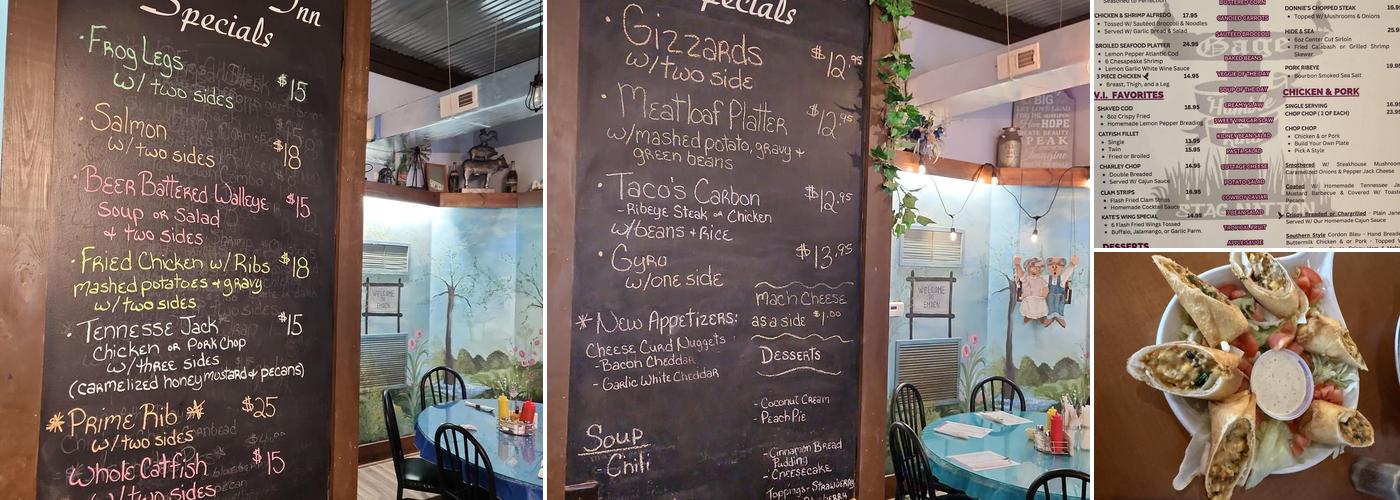 Inn
Specials
· Frog Legs
w/ two sides $15
· Salmon
w/two sides $18
· Beer Battered Walleye
Soup or Salad $15
& two sides
· Fried Chicken w/ Ribs $18
mashed potatoes + gravy
w/ two sides
· Tennesse Jack $15
Chicken or Pork Chop
w/three sides
(carmelized honey mustard & pecans)
* Prime Rib * $25
w/ two sides
Whole Catfish $15
w/ two sides
WELCOME
TO
EMDEN
Specials
· Gizzards $12.95
w/ two side
· Meatloaf Platter $12.95
w/mashed potato, gravy +
green beans
· Taco's Carbon $12.95
- Ribeye Steak or Chicken
w/beans + Rice
· Gyro $13.95
w/one side
* New Appetizers:
Cheese Curd Nuggets
- Bacon Cheddar
- Garlic White Cheddar
Soup
- Chili
Mac'n Cheese
as a side $1.00
Desserts
- Coconut Cream
- Peach Pie
- Cinnamon Bread
Pudding
- Cheesecake
Toppings - Strawberry
BIG
HOPE
PEAK
Imagine
WELCOME
TO
EMDEN
CHICKEN & SHRIMP ALFREDO 17.95
• Tossed W/ Sautéed Broccoli & Noodles
• Served W/ Garlic Bread & Salad
BROILED SEAFOOD PLATTER 24.95
• Lemon Pepper Atlantic Cod
• 6 Chesapeake Shrimp
• Lemon Garlic White Wine Sauce
3 PIECE CHICKEN 14.95
• Breast, Thigh, and a Leg
V.I. FAVORITES
SHAVED COD 18.95
• 8oz Crispy Fried
• Homemade Lemon Pepper Breading
CATFISH FILLET
• Single 13.95
• Twin 15.95
• Fried or Broiled
CHARLEY CHOP 14.95
• Double Breaded
• Served W/ Cajun Sauce
CLAM STRIPS 16.95
• Flash Fried Clam Strips
• Homemade Cocktail Sauce
KATE'S WING SPECIAL 14.95
• 6 Flash Fried Wings Tossed
• Buffalo, Jalamango, or Garlic Parm.
DESSERTS
BUTTERED CORN
CANDIED CARROTS
SAUTÉED BROCCOLI
BAKED BEANS
VEGGIE OF THE DAY
SOUP OF THE DAY
CREAMY SLAW
SWEET VINEGAR SLAW
KIDNEY BEAN SALAD
PASTA SALAD
COTTAGE CHEESE
POTATO SALAD
COWBOY CAVIAR
3 BEAN SALAD
TROPICAL FRUIT
APPLE SAUCE
STAG NATION
DONNIE'S CHOPPED STEAK
• Topped W/ Mushrooms & Onions
HIDE & SEA
• 6oz Center Cut Sirloin
• Fried Calabash or Grilled Shrimp
Skewer
PORK RIBEYE
• Bourbon Smoked Sea Salt
CHICKEN & PORK
SINGLE SERVING
CHOP CHOP ( 2 OF EACH)
CHOP CHOP
• Chicken & or Pork
• Build Your Own Plate
• Pick A Style
Smothered W/ Steakhouse
Caramelized Onions & Pepper Jack Cheese
Coated W/ Homemade Tennessee
Mustard Barbecue & Covered W/
Pecans
Crispy Breaded or Chargrilled - Plain
Served W/ Our Homemade Cajun Sauce
Southern Style Cordon Bleu - Hand
Buttermilk Chicken & or Pork